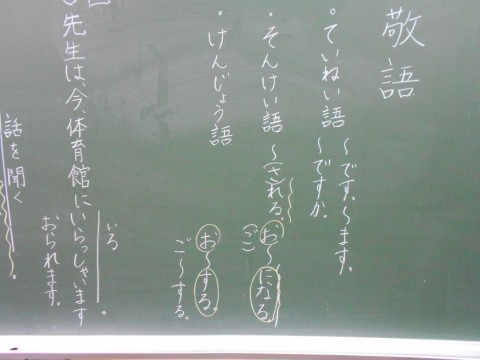 敬語
・ていねい語 〜です。〜ます。
〜ですか。
・そんけい語 〜(される。 お〜になる。
(ご)
・けんじょう語 お〜する。
ご〜する。
先生は、今、体育館にいらっしゃいます。
いる
おられます。
話を聞く。